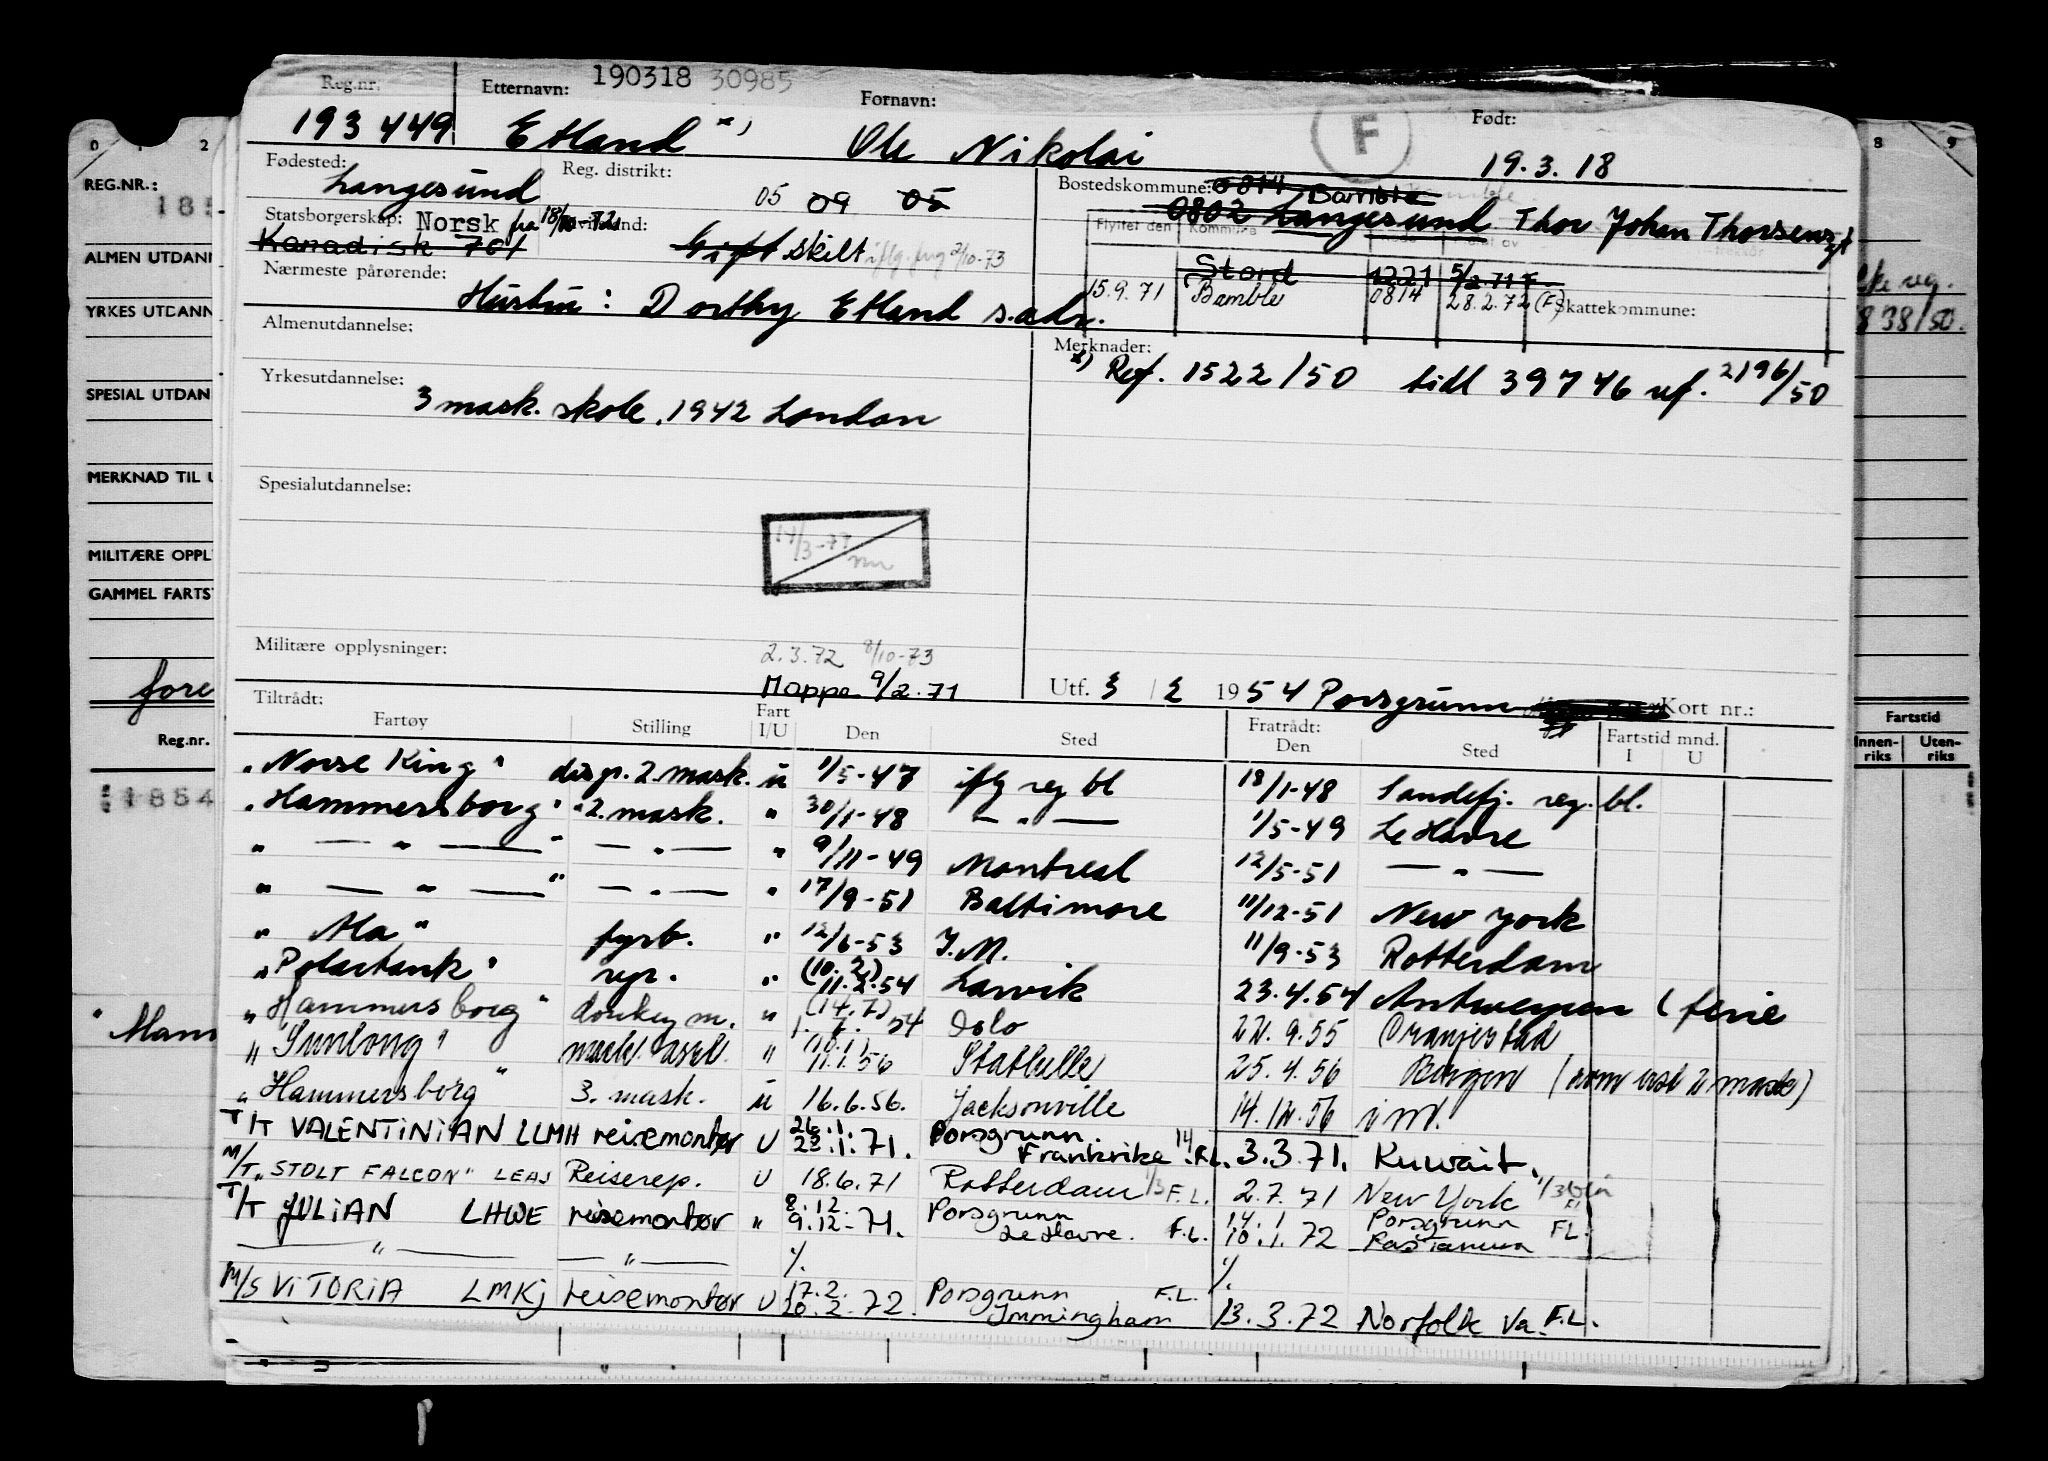 Reg.nr. Etternavn: 190318 30985 Fornavn: F Født:
193449 Etland x) Ole Nikolai 19.3.18
Fødested: Langesund Reg. distrikt: 05 09 05 Bostedskommune: 0814 Bamble
0802 Langesund Thor Johan Thorsensgt
Statsborgerskap: Norsk fra 18/10-72
Kanadisk 701 Gift skilt iflg. frg 2/10-73
Flyttet den Kommune
Stord 1221 5/2.71 F.
15.9.71 Bamble 0814 28.2.72 (F) Skattekommune:
Nærmeste pårørende: Hustru: Dorthy Etland s.adr.
Almenutdannelse:
Merknader:
x) Ref. 1522/50 tidl 39746 ref. 2196/50
Yrkesutdannelse:
3 mask. skole. 1942 London
Spesialutdannelse:
Militære opplysninger: 2.3.72 8/10-73
Mappe 9/2.71 Utf. 3/2 1954 Porsgrunn Kort nr.:
Tiltrådt: Fratrådt:
Fartøy Stilling Fart I/U Den Sted Den Sted Fartstid mnd. I U
"Norse King" disp. 2. mask. u 1/5-47 iflg reg bl 18/1-48 Sandefj. reg. bl.
"Hammersborg" 2. mask. " 30/1-48 — " — 1/5-49 Le Havre
" — " — " — " — " 9/11-49 Montreal 12/5-51 — " —
" — " — " — " — " 17/9-51 Baltimore 11/12-51 New York
" Ala " fyrb. " 12/6-53 I.M. 11/9-53 Rotterdam
"Polartank" rep. " (10.2) 11.2.54 Larvik 23.4.54 Antwerpen (ferie
"Hammersborg" donkeym. " (14.7) 54 Oslo 22.9.55 Oranjestad
" " mask. " 11.1.56 25.4.56 Bergen
"Hammersborg" 3. mask. u 16.6.56. Jacksonville 14.12.56 i m.
T/T VALENTINIAN LLMH reisemontør U 26.1. 23.1.71. Porsgrunn. Frankrike F.L. 3.3.71. Kuwait.
M/T "STOLT FALCON" LEAJ Reiserep. U 18.6.71 Rotterdam 1/3 F.L. 2.7.71 New York
T/T JULIAN LHWE reisemontør " 8.12. 9.12-71. Porsgrunn Le Havre. F.L. 14.1 10.1.72 Porsgrunn F.L.
— " — — " — ٪. ٪.
M/S ViTORiA LMKJ reisemontør U 17.2. 20.2.72. Porsgrunn Immingham F.L. 13.3.72 Norfolk Va. F.L.
0 1 2
REG.NR.:
185
ALMEN UTDANN
YRKES UTDANN
SPESIAL UTDAN
MERKNAD TIL U
MILITÆRE OPPL
GAMMEL FARTST
fore
Reg.nr.
1854
8 9
838/50.
Fartstid
Innenriks Utenriks